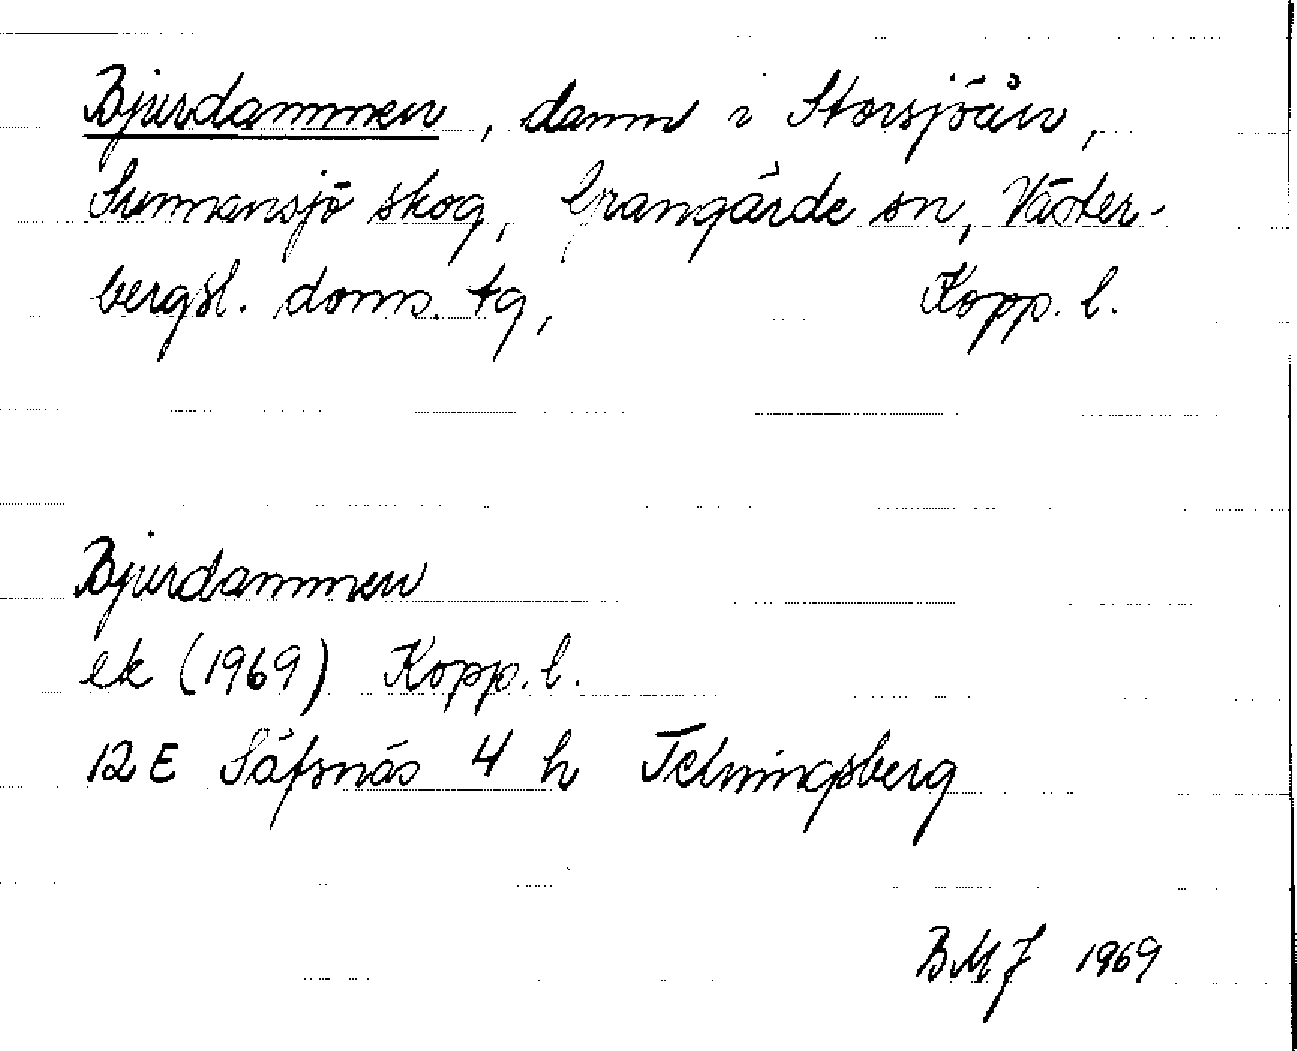 Bjurdammen, damm i Storsjöån,
Sunnansjö skog, Grangärde sn, Väster-
bergsl. doms. tg, Kopp. l.
Bjurdammen
ek (1969) Kopp. l.
12 E Säfsnäs 4 h Telningsberg
BMJ 1969